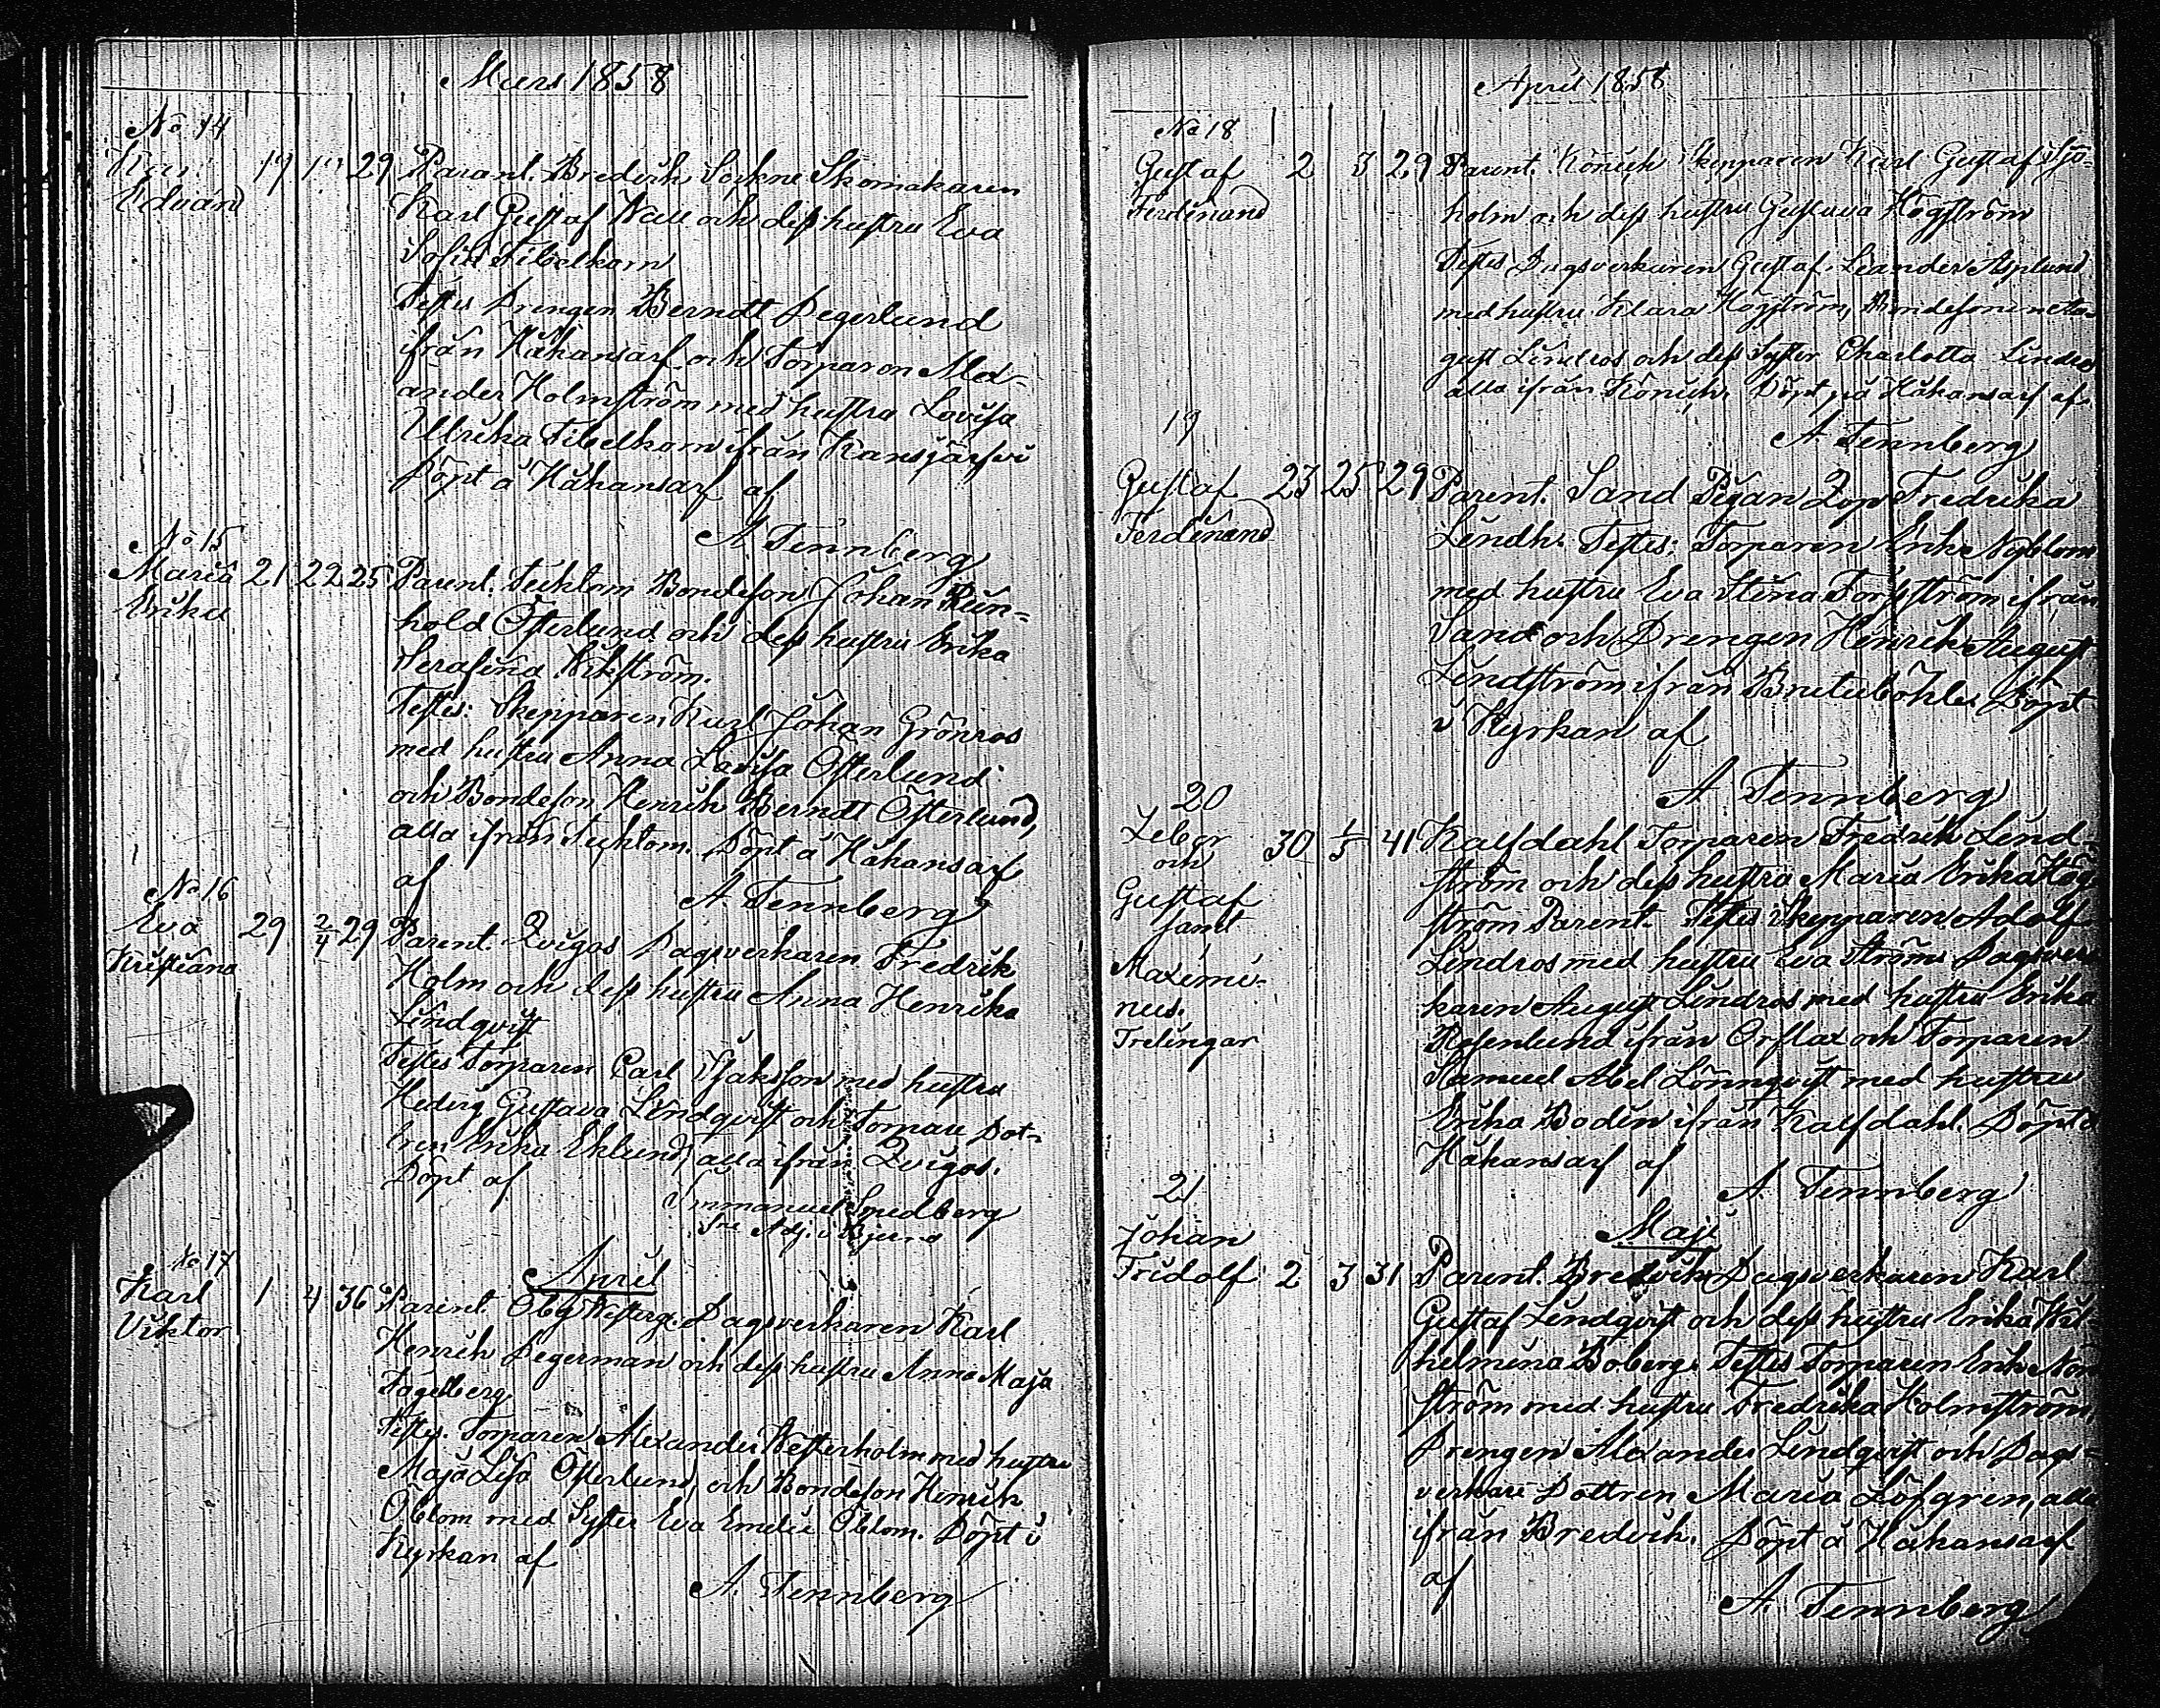 Mars 1858
No 14
Karl 19 19 29 Parent. Bredvik Sockne Skomakaren
Eduard Karl Gustaf Wall och dess hustru Eva
Sofia Fibelkorn
Testes Drengen Berndt Degerlund
ifrån Håkansarf och Torparen Alex-
ander Holmström med hustru Lovisa
Ullrika Fibelkorn ifrån Kansjärfvi
Döpt å Håkansarf af
A Tennberg
No 15
Maria 21 22 25 Parent. Bondeson Johan Rein-
Erika hold Österlund och dess hustru Erika
Serafina Wikström.
Testes: Skepparen Karl Johan Grönroos
med hustru Anna Lovisa Österlund
och Bondeson Henrik Berndt Österlund,
alla ifrån Döpt å Håkansarf
af A Tennberg
No 16
Eva 29 2/4 29 Parent. Qvigos Dagsverkaren Fredrik
Kristiana Holm och dess hustru Anna Henrika
Lindqvist
Testes Torparen Carl Isaksson med hustru
Hedvig Gustava Lindqvist och Torpare Dot-
tren Erika Eklund, alla ifrån Qvigos.
Döpt af
Immanuel Smedberg
Adj. i Bjerno
No 17
April
Karl 1 4 36 Parent. Öby Westerg. Dagsverkaren Karl
Viktor Henrik Degerman och dess hustru Anna Maja
Fagerberg
Testes. Torparen Alexander Westerholm med hustru
Maja Lisa Österlund, och Bondeson Henrik
Öblom med Syster Eva Emelie Öblom. Döpt i
Kyrkan af
A. Tennberg
April 1858
No 18
Gustaf 2 3 29 Parent. Könick Skepparen Karl Gustaf Sjö-
Ferdinand holm och dess hustru Gustava Högström
Testes Dagsverkaren Gustaf Leander Asplund
med hustru Klara Högström, Bondesonen Au-
gust Lindros och dess Syster Charlotta Lindros
alla ifrån Könick. Döpt på Håkansarf af
A Tennberg
19
Gustaf 23 25 29 Parent. Sand Pigan Fredrika
Ferdinand Lindh. Testes: Torparen Erik Nyblom
med hustru Eva Stina Torsström ifrån
Sand och Drengen Henrik August
Lindström ifrån Brutuböhle. Döpt
i Kyrkan af
A Tennberg
20
Zeber 30 1/5 41 Kalfdahl Torparen Fredrik Lind-
och ström och dess hustru Maria Erika Hög-
Gustaf ström Parent. Testes Skepparen Adolf
samt Lindros med hustru Eva Ström Dagsver-
Maximi- karen August Lindros med hustru Erika
nus. Rosenlund ifrån Orslax och Torparen
Trelingar Samuel Abel Lönnqvist med hustru
Erika Bodén ifrån Kalfdahl. Döpt å
Håkansarf af
A. Tennberg
21
Maji
Johan
Fridolf 2 3 31 Parent. Bredvik Dagsverkaren Karl
Gustaf Lindqvist och dess hustru Erika Wil-
helmina Boberg. Testes Torparen Erik Norr-
ström med hustru Fredrika Holmström,
Drengen Alexander Lindqvist och Dags-
verkare Dottren Maria Löfgren, alla
ifrån Bredvik. Döpt å Håkansarf
af
A. Tennberg